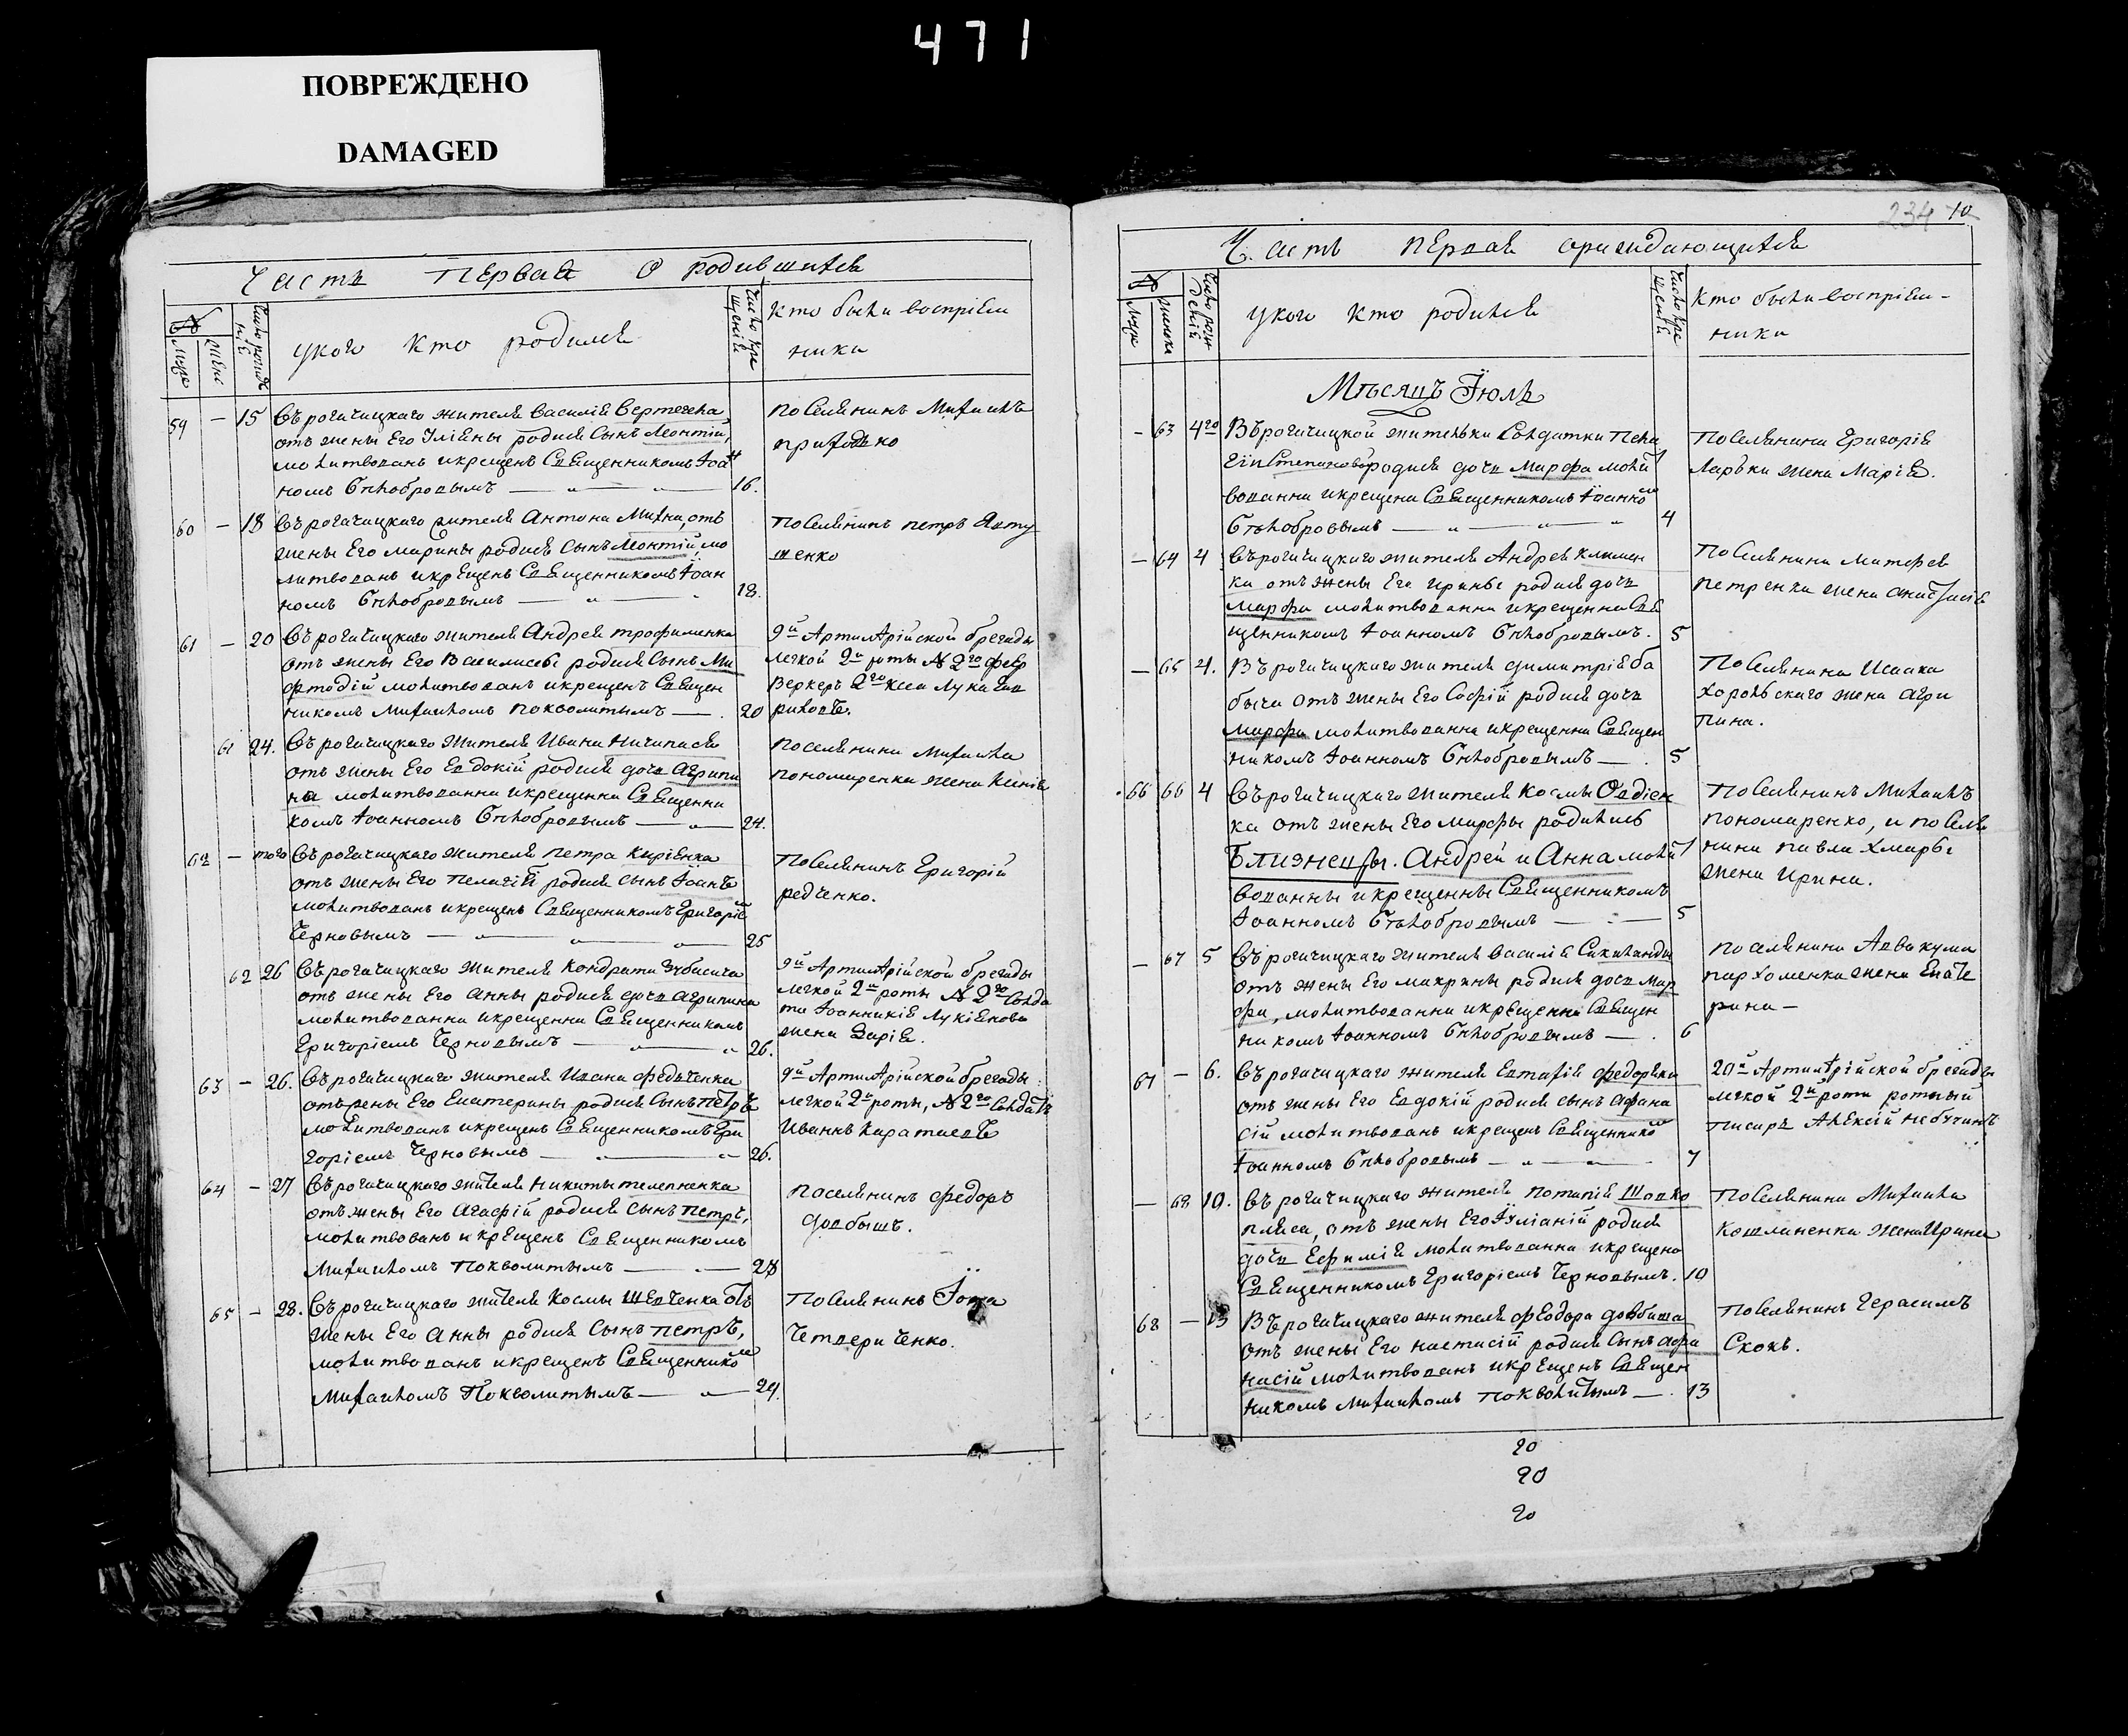 471
ПОВРЕЖДЕНО
DAMAGED
Часть Первая О родившихся
№
Муж
Жене
Число рожде
нiй
укого кто родился
Число кре
щенiй
кто были воспрiем
ники
59 — 15 Въ рогачицкаго жителя Василiя Вертегела
отъ жены Его Улiяны родился сынъ Леонтiй,
молитвованъ икрещенъ Священникомъ Iоан
номъ Бѣлобровымъ — „ — „ 16.
поселянинъ Михаилъ
приходько
60 — 18 Въ рогачицкаго жителя Антона Михна, отъ
жены Его марины родился сынъ Леонтiй, мо
литвованъ икрещенъ Священникомъ Iоан
номъ Бѣлобровымъ — „ — „ 18.
поселянинъ петръ Явту
шенко
61 — 20 Въ рогачицкаго жителя Андрея трофименка
отъ жены Его Василисы родился сынъ Ми
фтодiй молитвованъ икрещенъ Священ
никомъ Михаиломъ Покволитымъ — . 20
9й Артилярiйской брегады
легкой 2й роты № 2го фер
Веркеръ 2го
61 24. Въ рогачицкаго жителя Ивана
отъ жены Его Евдокiй родися дочь Агрипи
на молитвованна икрещенна Священни
комъ Iоанномъ Бѣлобровымъ — „ — 24.
поселянина Михаила
пономаренка жена Ксенiя
62 — того Въ рогачицкаго жителя Петра Кирiенка
отъ жены Его Пелагiй родися сынъ Iоанъ
молитвованъ икрещенъ Священникомъ Григорiе
Черновымъ — „ — „ — „ — 25
Поселянинъ Григорiй
редченко.
62 26 Въ рогачицкаго жителя Кондрата Зубасича
отъ жены Его Анны родися дочь агрипина
молитвованна икрещенна Священникомъ
Григорiемъ Черновымъ — „ — „ 26.
9й Артилярiйской брегады
легкой 2й роты № 2го Солда
та Iоанникiя Лукiянова
жена Дарiя.
63 — 26. Въ рогачицкаго жителя Ивана федченка
отъ жены Его Екатерины родися сынъ петръ
молитвованъ икрещенъ Священникомъ Гри
горiемъ Черновымъ — „ — „ 26.
9й Артилярiйской брегады
легкой 2й роты, № 2го Солдатъ
Иваннъ Каратаевъ
64 — 27 Въ рогачицкаго жителя Никиты телепненка
отъ жены Его Агафiй родися сынъ петръ,
молитвованъ икрещенъ Священникомъ
Михаиломъ Покволитымъ — — 28
поселянинъ федоръ
довбышъ.
65 — 28. Въ рогачицкаго жителя Космы Шевченка отъ
жены Его Анны родися сынъ петръ,
молитвованъ икрещенъ Священнико
Михаиломъ Покволитымъ — „ — 29.
Поселянинъ Iона
Четвериченко.
234 10
Часть первая ораждающихся
№
Муж
женска
Число рож
денiй
укого кто родился
Число кре
щенiй
Кто были воспрiем-
ники
Мѣсяцъ Iюль
— 63 4го Въ рогачицкой жительки Солдатки Пела
гiи Степановой родися дочь Марфа молит
вованна икрещена Священникомъ Iоанно
Бѣлобровымъ — „ — „ — „ 4
Поселянина Григорiя
Ларьки жена Марiя.
— 64 4 Въ рогачицкаго жителя Андрея Климен
ка отъ жены Его ирины родися дочь
марфа молитвованна икрещенна Свя
щенникомъ Iоанномъ Бѣлобровымъ. 5
Поселянина матфея
петренка жена анастасiя
— 65 4. Въ рогачицкаго жителя димитрiя ба
быча отъ жены Его Софiй родися дочь
марфа молитвованна икрещенна Священ
никомъ Iоанномъ Бѣлобровымъ — . 5
Поселянина Исаака
хорольскаго жена агри
пина.
66 66 4 Въ рогачицкаго жителя Космы Овдiен
ка отъ жены Его марфы родились
Близнецы. Андрей и Анна молит
вованны икрещенны Священникомъ
Iоанномъ Бѣлобровымъ — „ — 5
Поселянинъ Михаилъ
пономаренко, и поселя
нина павла Хмары
жена ирина.
— 67 5 Въ рогачицкаго жителя Василiя
отъ жены Его макрины родися дочь мар
фа, молитвованна икрещенна Священ
никомъ Iоанномъ Бѣлобровымъ — . 6
поселянина Аввакума
пархоменка жена Екате
рина —
67 — 6. Въ рогачицкаго жителя Евтафiя федорика
отъ жены Его Евдокiй родися сынъ афана
сiй молитвованъ икрещенъ Священнико
Iоанномъ Бѣлобровымъ — „ — „ — 7
20й Артилярiйской брегады
легкой 2й роты ротный
писаръ Алексiй небучинъ
— 68 10. Въ рогачицкаго жителя потапiя Шовко
пляса, отъ жены Его Iулiанiй родися
дочь Ефимiя молитвованна икрещена
Священникомъ Григорiемъ Черновымъ. 10
Поселянина Михаила
Кошланенка жена Ирина
68 — 13 Въ рогачицкаго жителя феодора довбиша
отъ жены Его настасiй родися сынъ афа
насiй молитвованъ икрещенъ Священ
никомъ Михаиломъ Покволитымъ — . 13
Поселянинъ Герасимъ
Скокъ.
20
20
20